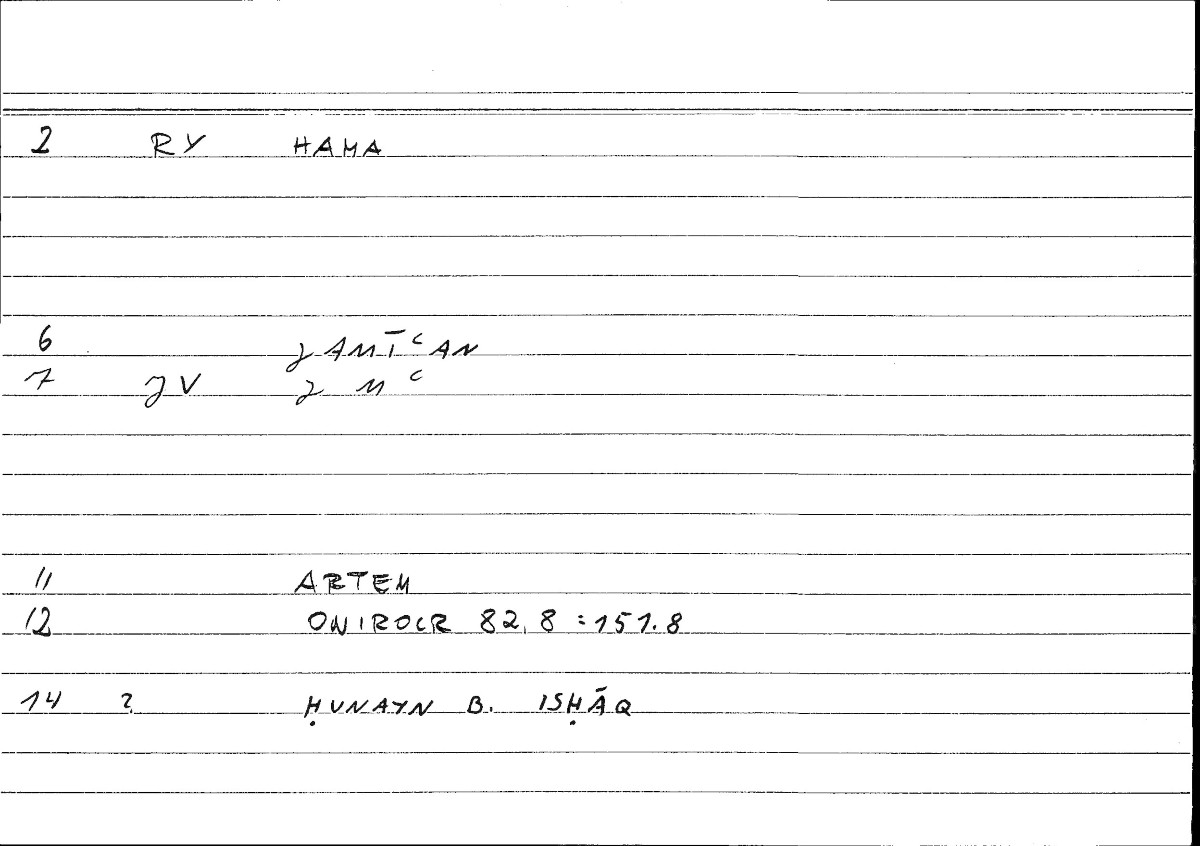 2 RY HAMA
6 JAMĪʿAN
7 JV J M ʿ
11 ARTEM
12 ONIROCR 82,8 :151.8
14 ? ḤUNAYN B. ISḤĀQ